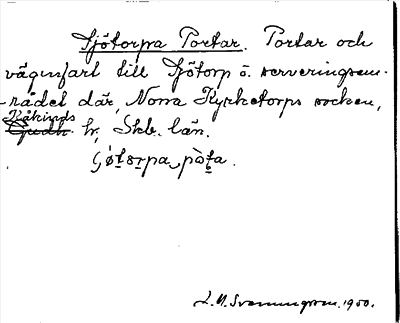 Sjötorpa Portar. Portar och
väginfart till Sjötorp o. serveringsom-
rådet där, Norra Kyrketorps socken,
Kåkinds
Gudh. hr, Skb. län.
ʃøtɷrpa pòta.
S. M. Svenungsson. 1950.